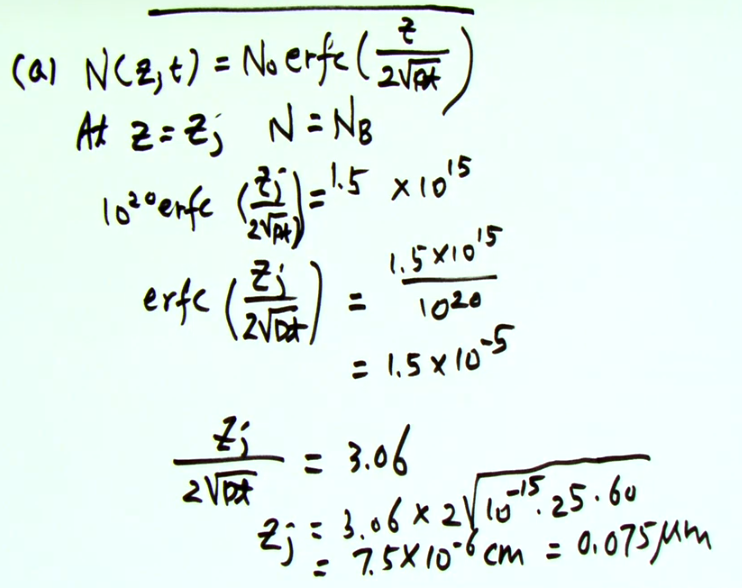 (a) N(z,t) = N₀ erfc(z/2√Dt)
At z = zj N = NB
10²⁰ erfc (zj/2√Dt) = 1.5 × 10¹⁵
erfc (zj/2√Dt) = 1.5×10¹⁵/10²⁰
= 1.5 × 10⁻⁵
zj/2√Dt = 3.06
zj = 3.06 × 2√10⁻¹⁵·25·60
= 7.5×10⁻⁶ cm = 0.075 μm